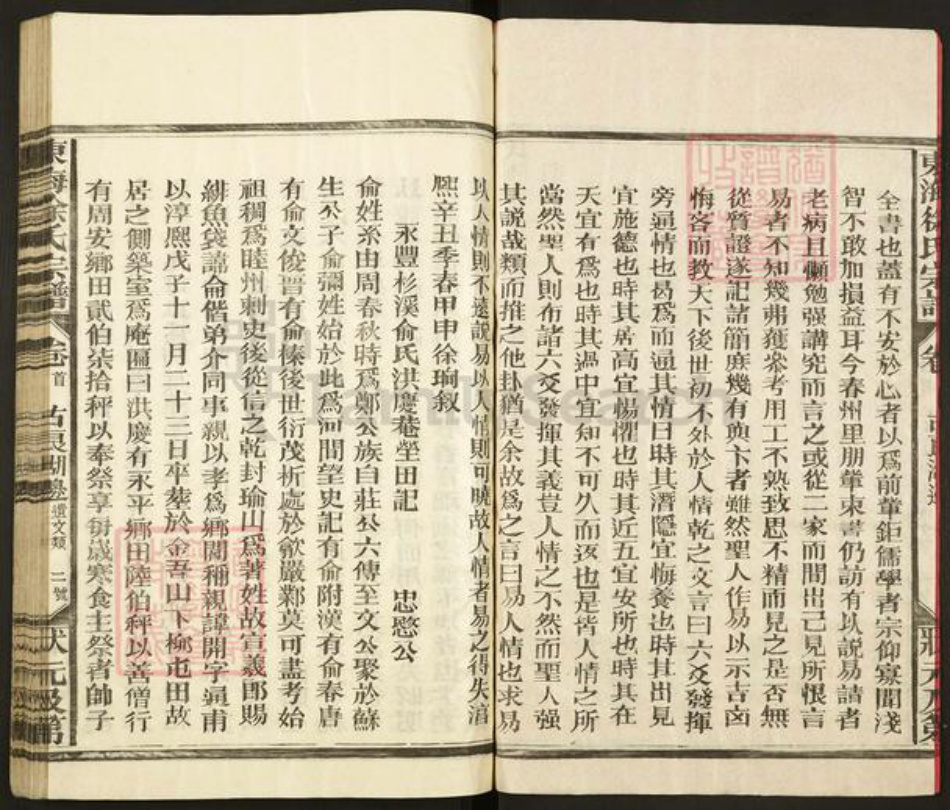 全書也蓋有不安於心者以爲前輩鉅儒學者宗仰寡聞淺
智不敢加損益耳今春州里朋輩束書仍訪有以說易請者
老病且懶勉强講究而言之或從二家而間出己見所恨言
易者不知幾弗獲叅考用工不熟致思不精而見之是否無
從質證遂記諸簡庶幾有與卞者雖然聖人作易以示吉凶
悔吝而教天下後世初不外於人情乾之文言曰六爻發揮
旁通情也曷爲而通其情曰時其潛隱宜悔養也時其出見
宜施德也時其居高宜惕懼也時其近五宜安所也時其在
天宜有爲也時其過中宜知不可久而返也是皆人情之所
當然聖人則布諸六爻發揮其義豈人情之不然而聖人强
其說哉類而推之他卦猶是余故爲之言曰易人情也求易
以人情則不遠說易以人情則可曉故人情者易之得失淯
熈辛丑季春甲申徐珦叙
永豐杉溪俞氏洪慶菴塋田記 忠愍公
俞姓系由周春秋時爲鄭公族自莊公六傳至文公聚於蘇
生公子俞彌姓始於此爲河間望史記有俞附漢有俞春唐
有俞文俊晋有俞榛後世衍茂析處於歙嚴鄴莫可盡考始
祖稠爲睦州刺史後從信之乾封瑜山爲著姓故宣義郎賜
緋魚袋諱侖偕弟介同事親以孝爲鄉閭稱親諱開字通甫
以淳熈戊子十一月二十三日卒塟於金吾山下柳屯田故
居之側築室爲庵匾曰洪慶有永平鄉田陸伯秤以善僧行
有周安鄉田貳伯柒拾秤以奉祭享毎歲寒食主祭者帥子
東海徐氏宗譜 卷首 古良湖邊 遺文類 二號 狀元及第